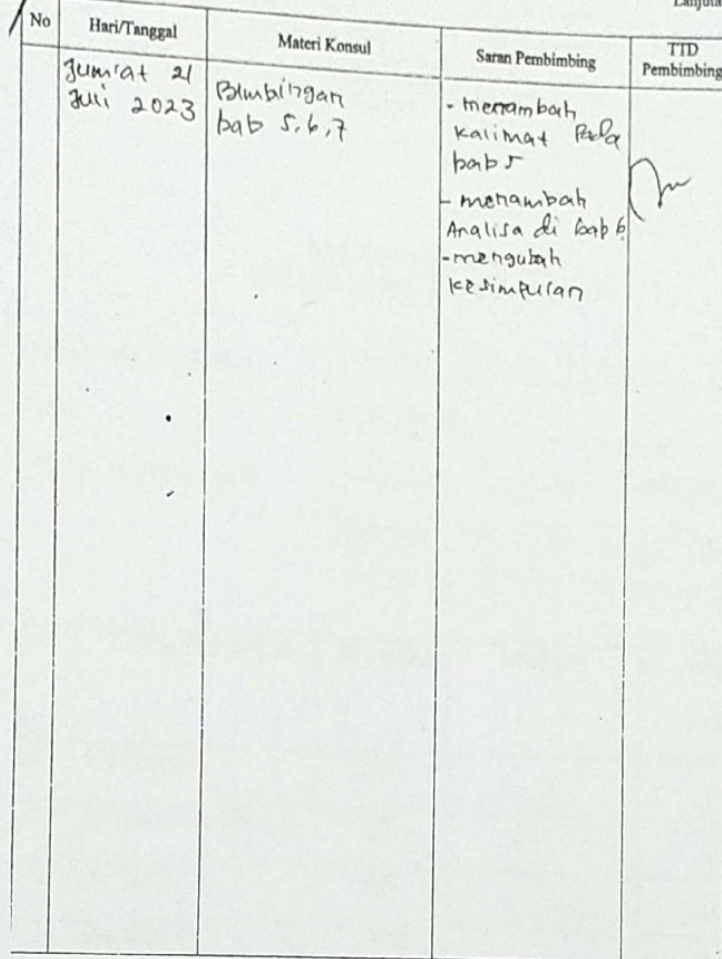 Lanjuta
No Hari/Tanggal Materi Konsul Saran Pembimbing TTD Pembimbing
Jum'at 21
Juli 2023
Bimbingan
bab 5,6,7
- menambah
kalimat Pada
bab 5
- menambah
Analisa di bab 6
- mengubah
kesimpulan